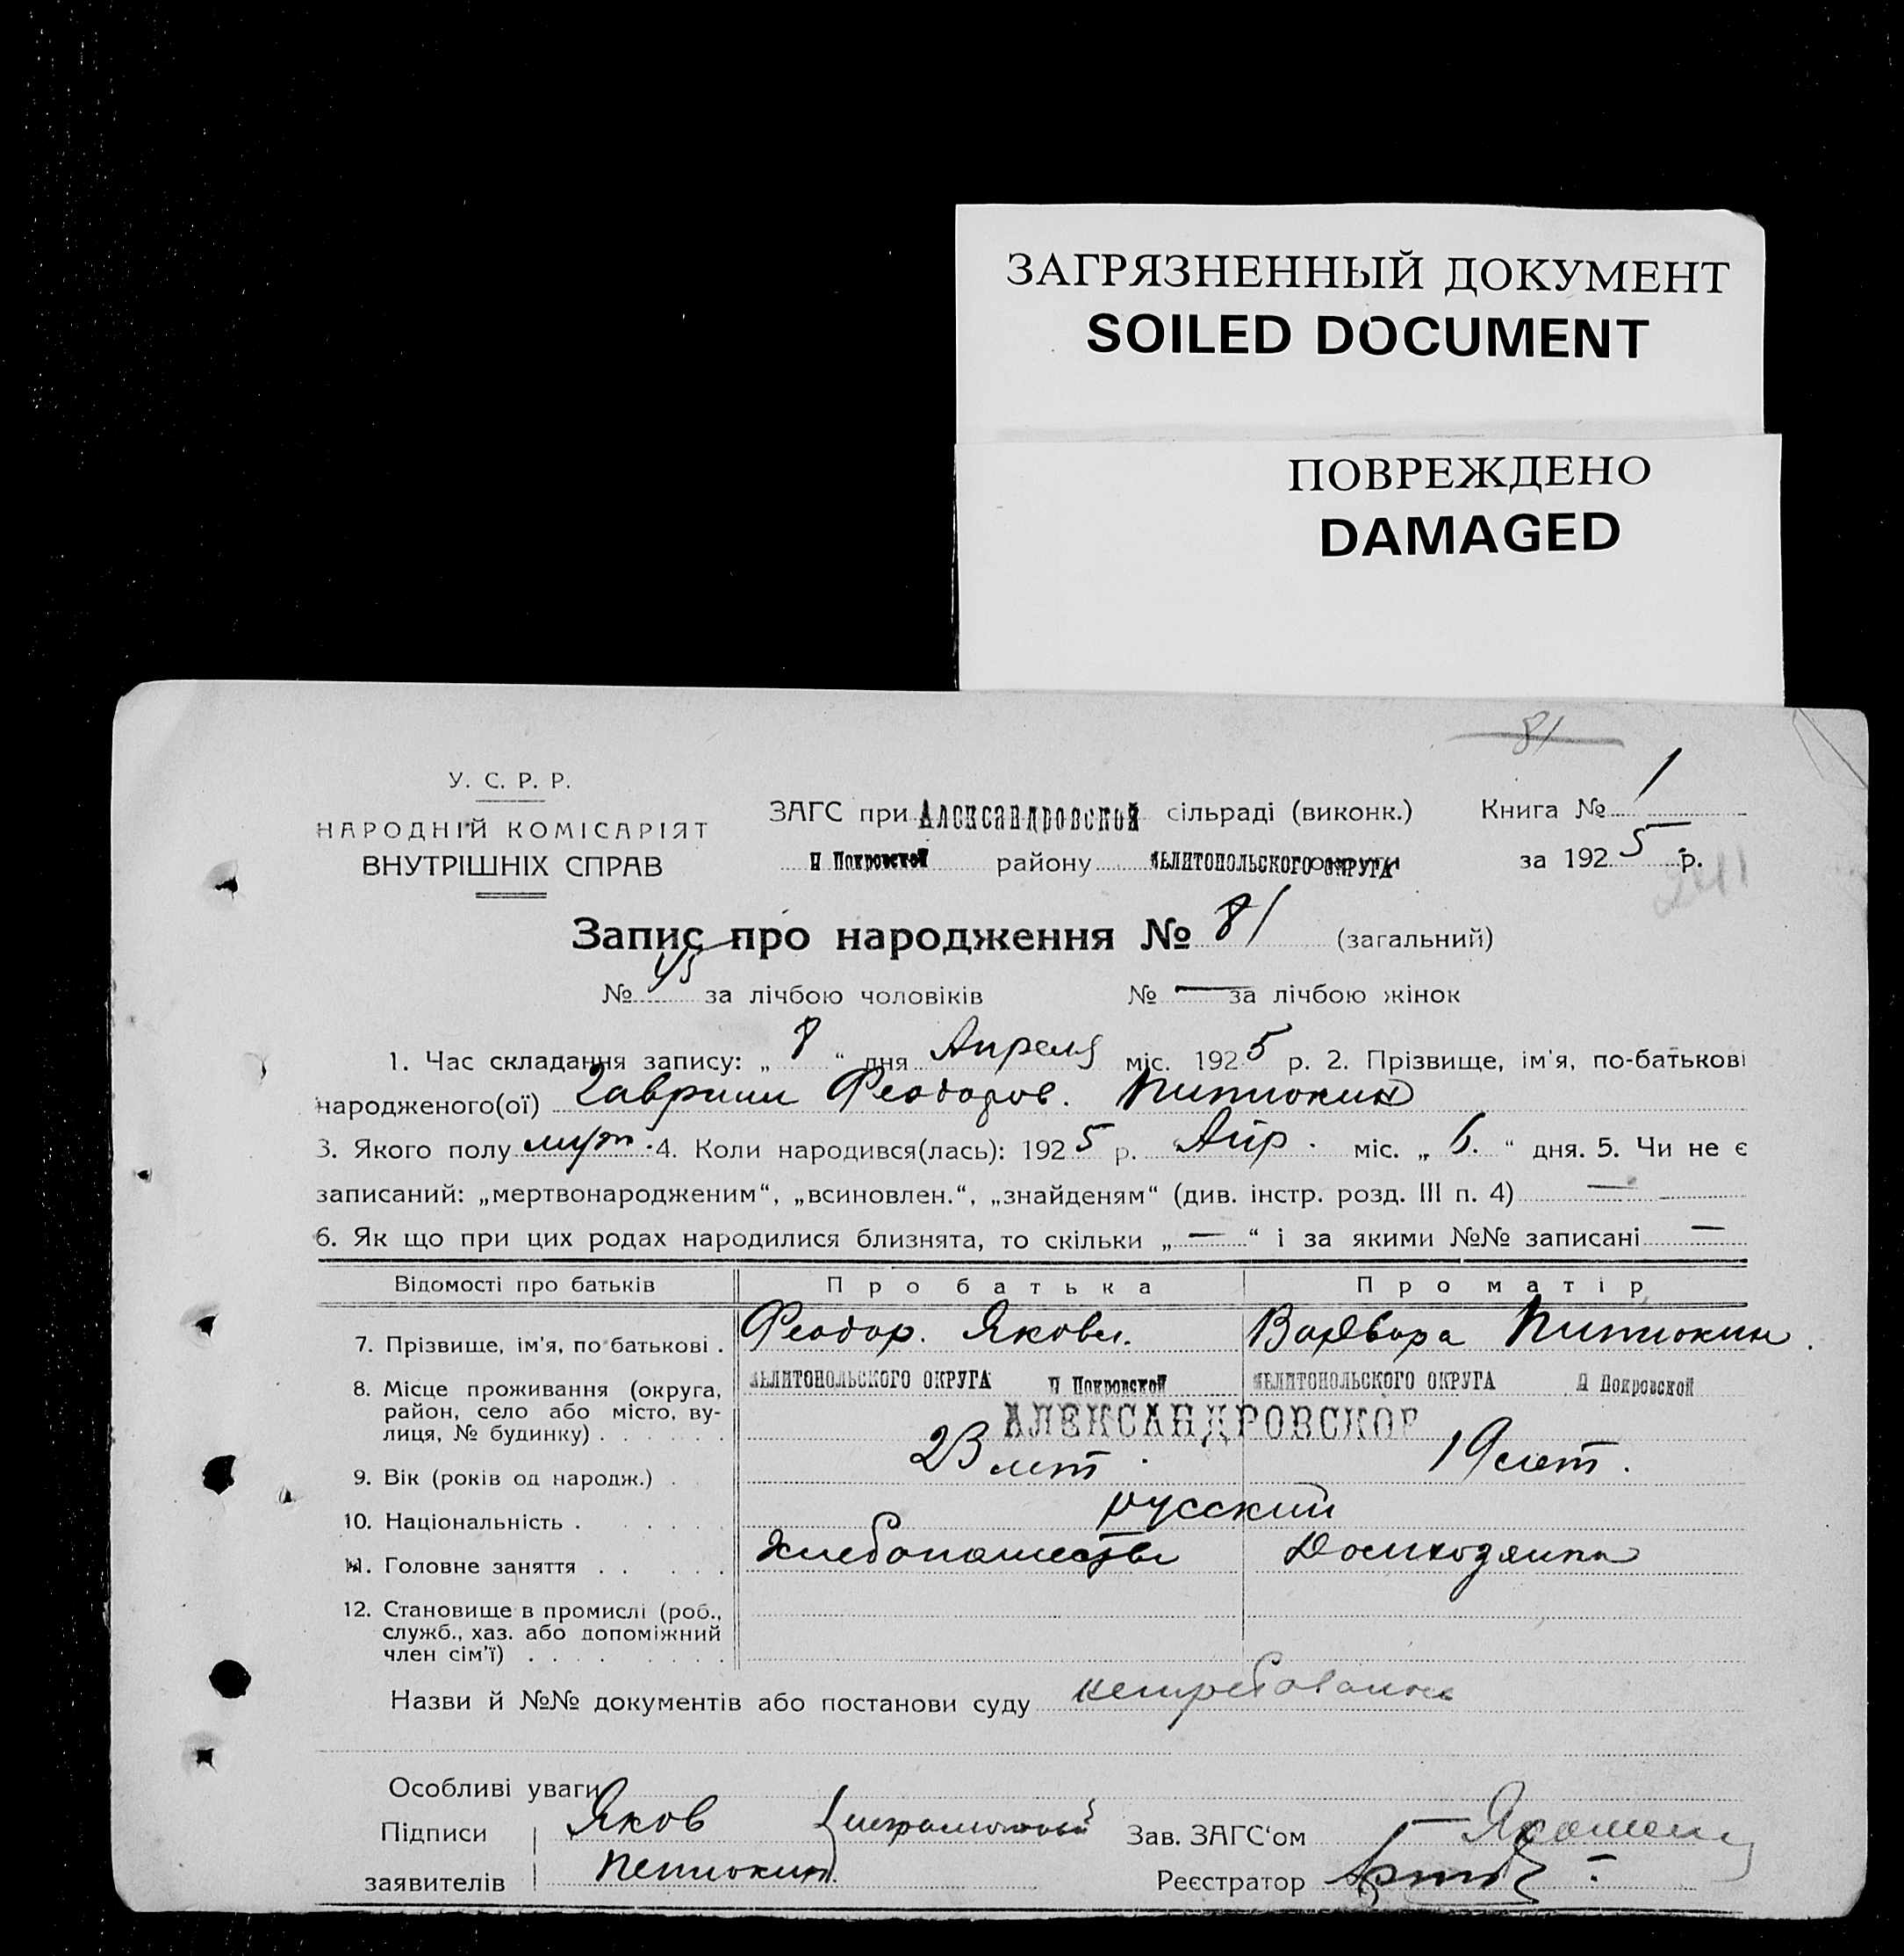 ЗАГРЯЗНЕННЫЙ ДОКУМЕНТ
SOILED DOCUMENT
ПОВРЕЖДЕНО
DAMAGED
81
У. С. Р. Р.
НАРОДНІЙ КОМІСАРІЯТ
ВНУТРІШНІХ СПРАВ
ЗАГС при Александровской сільраді (виконк.) Книга № 1
П Покровской району МЕЛИТОПОЛЬСКОГО ОКРУГА за 1925 р.
241
Запис про народження № 81 (загальний)
№ 45 за лічбою чоловіків № — за лічбою жінок
1. Час складання запису: „ 8 “ дня Апреля міс. 1925 р. 2. Прізвище, ім'я, по-батькові
народженого(ої) Гавриил Феодоров. Питюкин
3. Якого полу муж. 4. Коли народився(лась): 1925 р. Апр. міс. „ 6. “ дня. 5. Чи не є
записаний: „мертвонародженим“, „всиновлен.“, „знайденям“ (див. інстр. розд. III п. 4) —
6. Як що при цих родах народилися близнята, то скільки „ — “ і за якими №№ записані —
Відомості про батьків Про батька Про матір
7. Прізвище, ім'я, по батькові . Феодор. Яковл. Варвара Питюкин.
8. Місце проживання (округа, район, село або місто, вулиця, № будинку) МЕЛИТОПОЛЬСКОГО ОКРУГА П Покровской МЕЛИТОПОЛЬСКОГО ОКРУГА П Покровской
АЛЕКСАНДРОВСКОЕ
9. Вік (років од народж.) 23 лет. 19 лет.
10. Національність . русский
11. Головне заняття . . Хлебопашество Домходяика
12. Становище в промислі (роб., служб., хаз. або допоміжний член сім'ї)
Назви й №№ документів або постанови суду нетребовалось
Особливі уваги
Підписи Яков неграмотный Зав. ЗАГС'ом
заявителів Петюкин Реєстратор